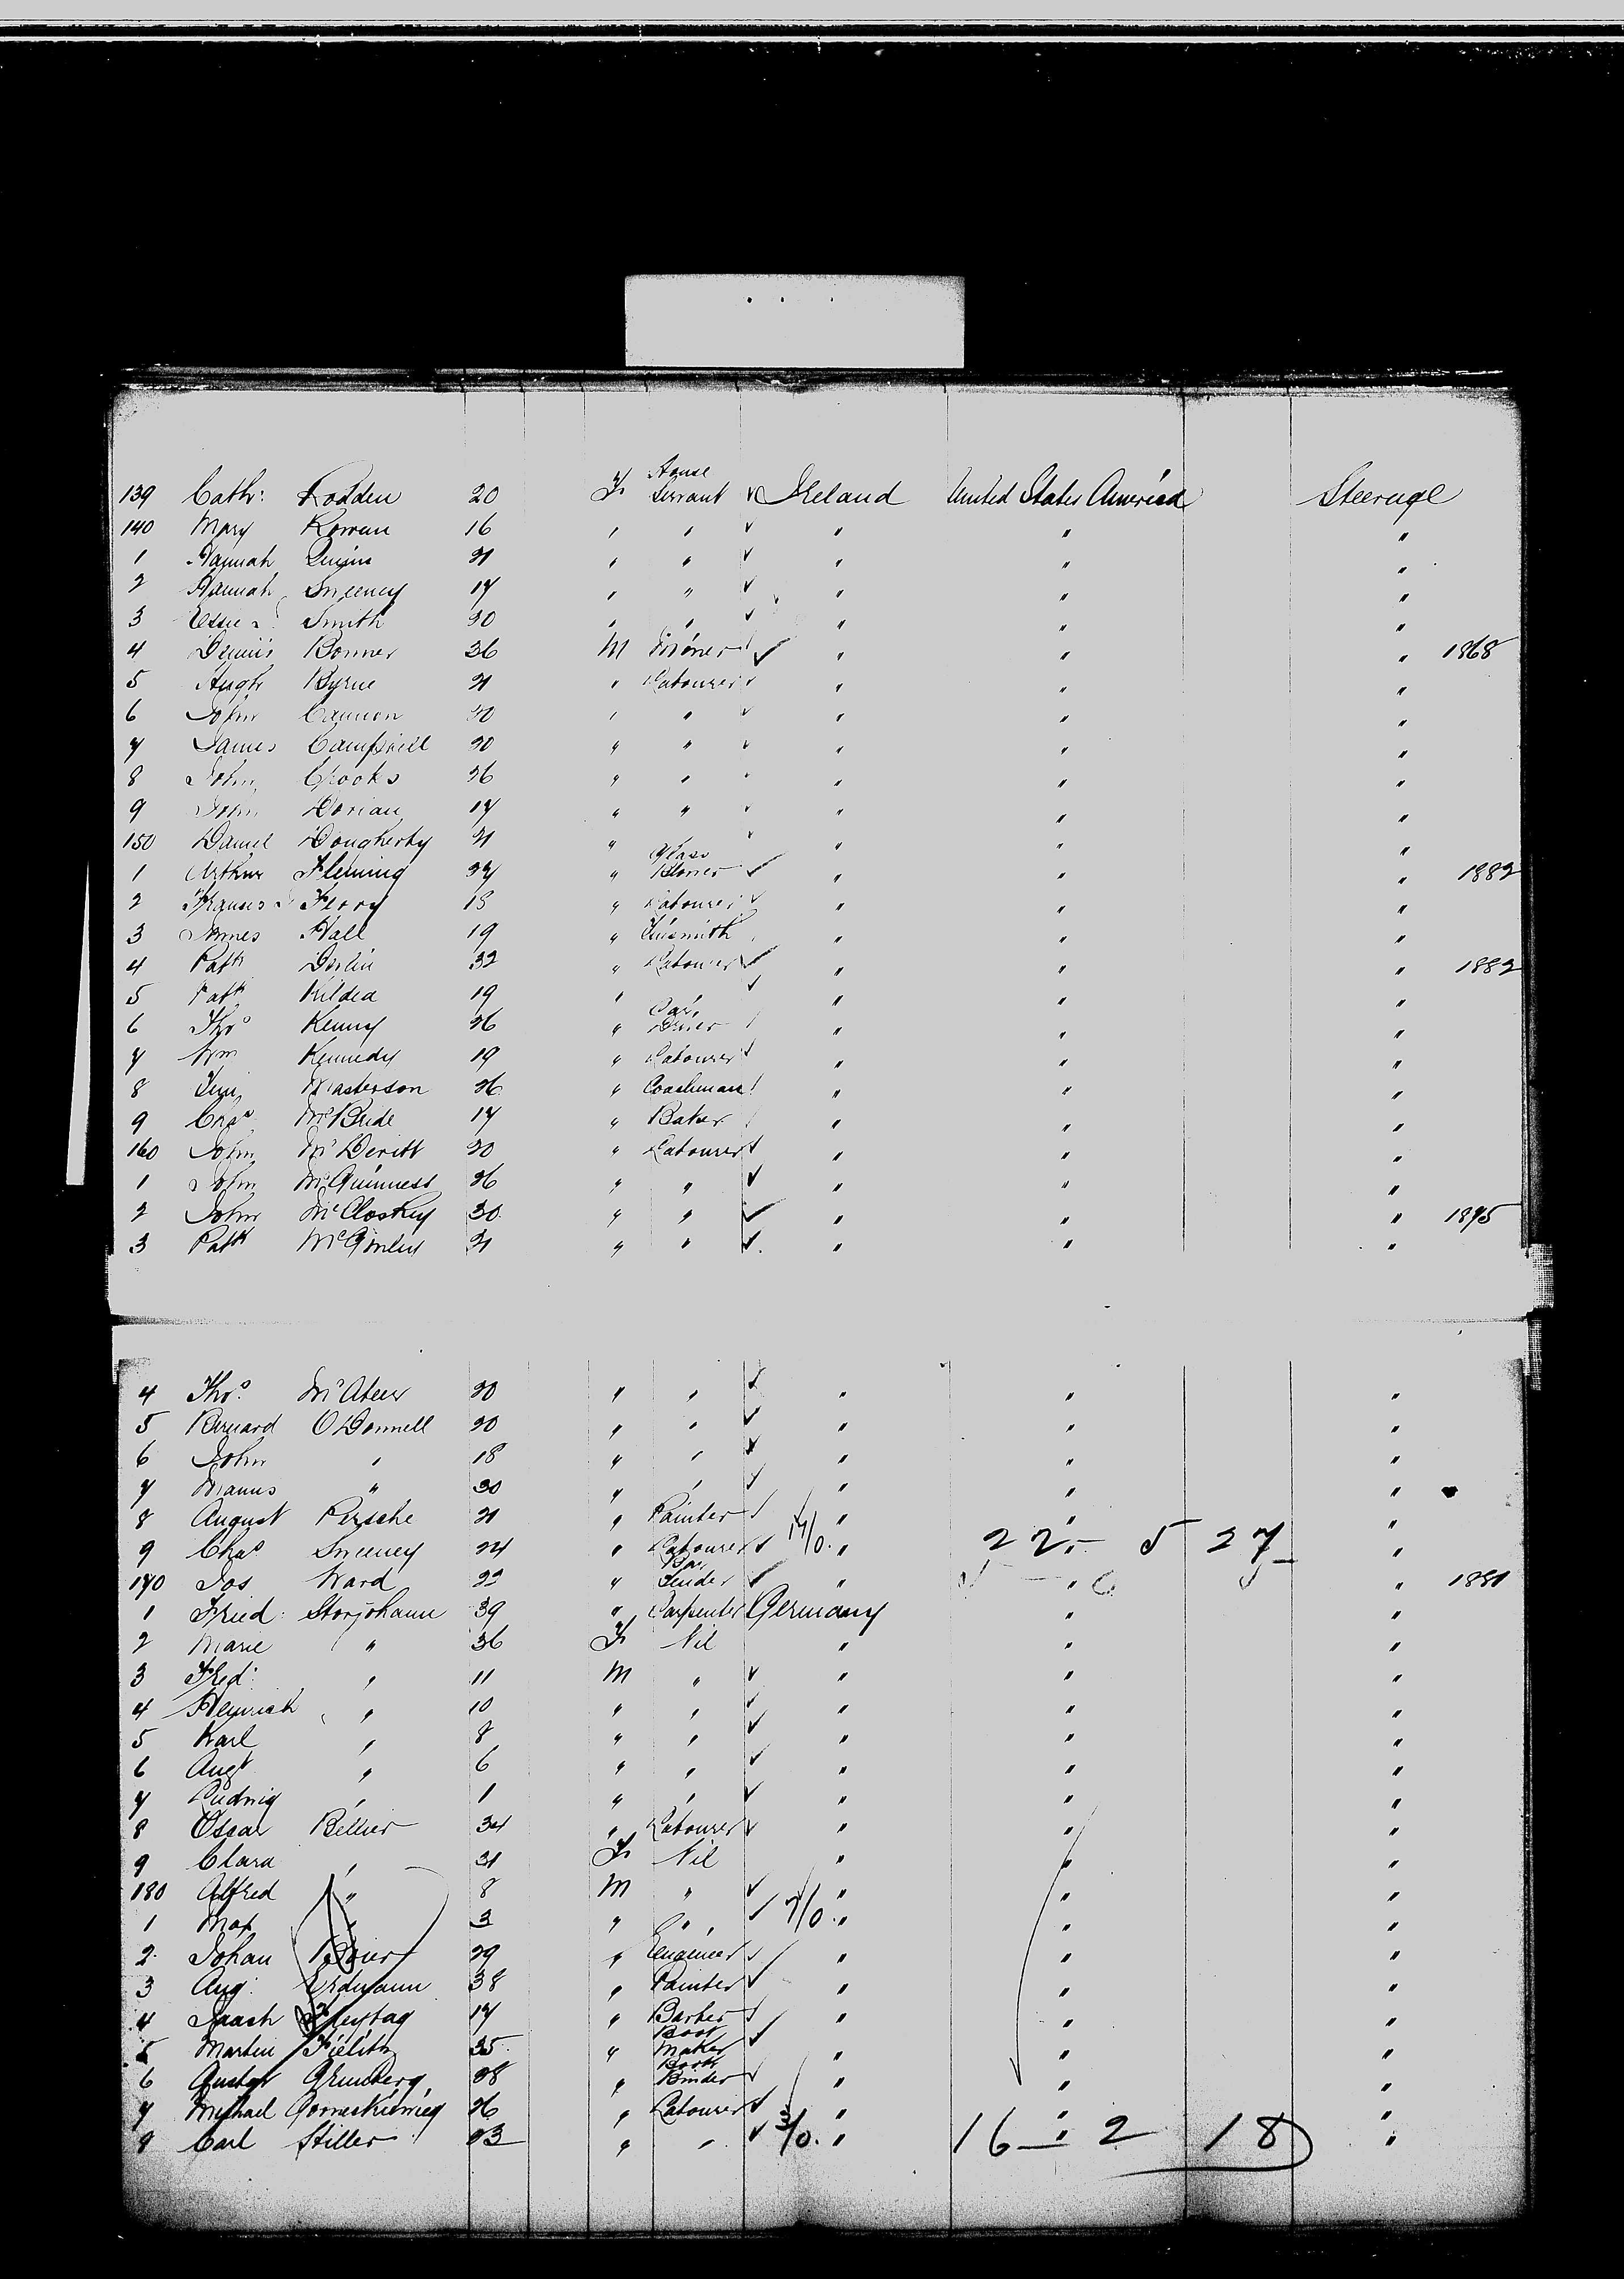 139 Cath: Rodden 20 F House Servant ✓ Ireland United States America Steerage
140 Mary Rowan 16 " " ✓ " " "
1 Hannah Quinn 21 " " ✓ " " "
2 Hannah Sweeney 17 " " ✓ " " "
3 Essie Smith 20 " " ✓ " " "
4 Dennis Bonner 36 M Miner ✓ " " " 1868
5 Hugh Byrne 21 " Labourer ✓ " " "
6 John Cannon 20 " " ✓ " " "
7 James Campbell 20 " " ✓ " " "
8 John Crooks 26 " " " " "
9 John Dorian 17 " " ✓ " " "
150 Daniel Dougherty 21 " ✓ " " "
1 Arthur Fleming 27 " Glass Blower ✓ " " " 1882
2 Francis Ferry 18 " Labourer ✓ " " "
3 James Hall 19 " Tinsmith " " "
4 Patk Devlin 32 " Labourer ✓ " " " 1882
5 Patk Kildea 19 " " ✓ " " "
6 Thos Kenny 26 " Car Driver " " "
7 Wm Kennedy 19 " Labourer ✓ " " "
8 Masterson 26 " Coachman " " "
9 Chas McBride 17 " Baker " " "
160 John McDevitt 20 " Labourer ✓ " " "
1 John McGuinness 26 " " ✓ " " "
2 John McCloskey 30 " " ✓ " " " 1875
3 Patk McGinley 21 " " ✓ " " "
4 Thos. McAteer 20 " " ✓ " " "
5 Bernard O'Donnell 20 " " ✓ " " "
6 John " 18 " " ✓ " " "
7 Manus " 30 " " ✓ " " "
8 August Persche 21 " Painter ✓ " " "
9 Chas Sweeney 24 " Labourer ✓ 17/0. " 22 " 5 27 "
170 Jos Ward 22 " Bar Tender ✓ " " " 1881
1 Fried: Storjohann 39 " Carpenter Germany " "
2 Marie " 36 F Nil " " "
3 Fred: " 11 M " ✓ " " "
4 Heinrich " 10 " " ✓ " " "
5 Karl " 8 " " ✓ " " "
6 Augt " 6 " " ✓ " " "
7 Ludwig " 1 " " ✓ " " "
8 Oscar Bellier 34 " Labourer ✓ " " "
9 Clara " 31 F Nil " " "
180 Alfred " 8 M " ✓ " " "
1 Max " 3 " " ✓ 7/0. " " "
2 Johan 29 " Engineer ✓ " " "
3 Aug: Erdmann 38 " Painter ✓ " " "
4 Freytag 17 " Barber ✓ " " "
5 Martin Fielitz 35 " Boot Maker ✓ " " "
6 Gustav Grunberg 28 " Book Binder ✓ " " "
7 Michael 26 " Labourer ✓ " " "
8 Carl Stiller 23 " " ✓ 3/0. " 16 " 2 18 "